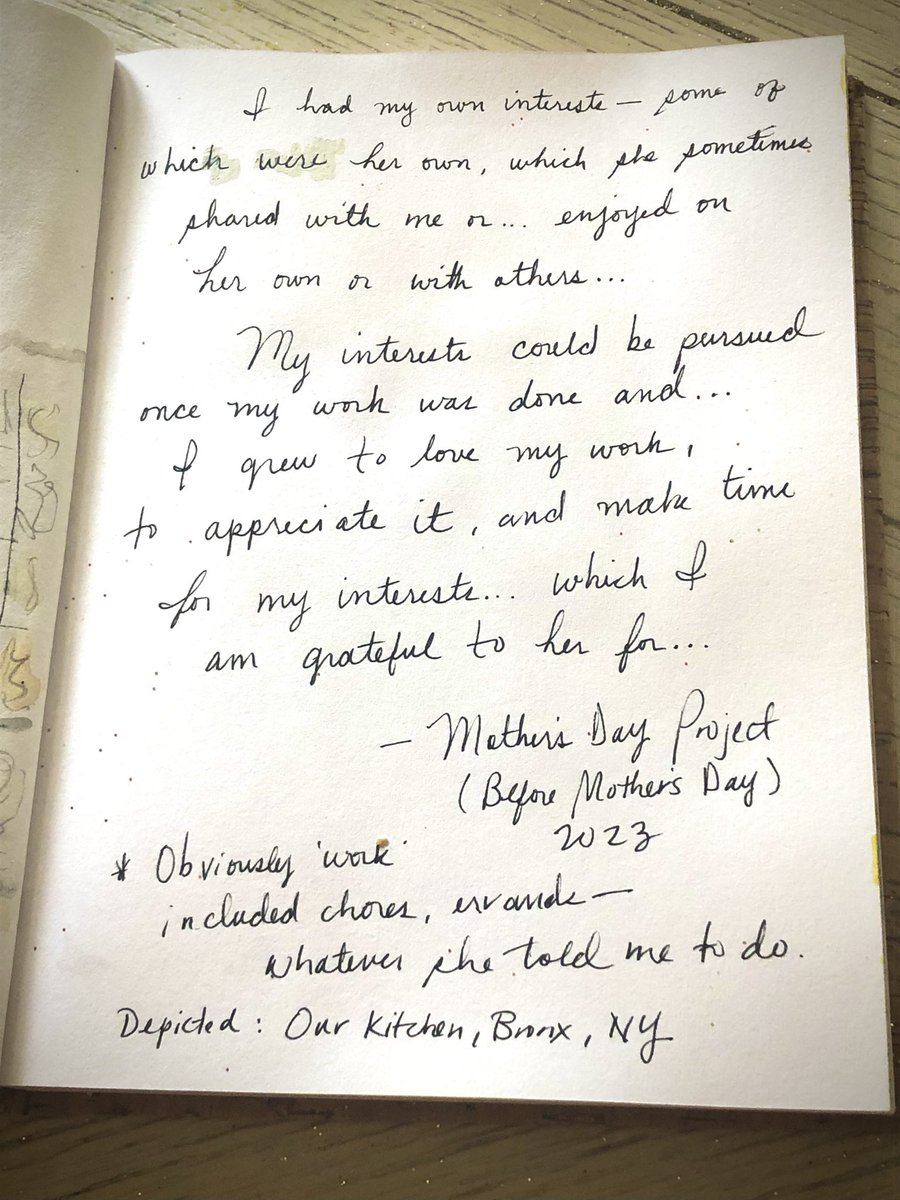 I had my own interests — some of
which were her own, which she sometimes
shared with me or... enjoyed on
her own or with others...
My interests could be pursued
once my work was done and...
I grew to love my work,
to appreciate it, and make time
for my interests... which I
am grateful to her for...
— Mother's Day Project
(Before Mother's Day)
2023
* Obviously 'work'
included chores, errands —
whatever she told me to do.
Depicted: Our Kitchen, Bronx, NY